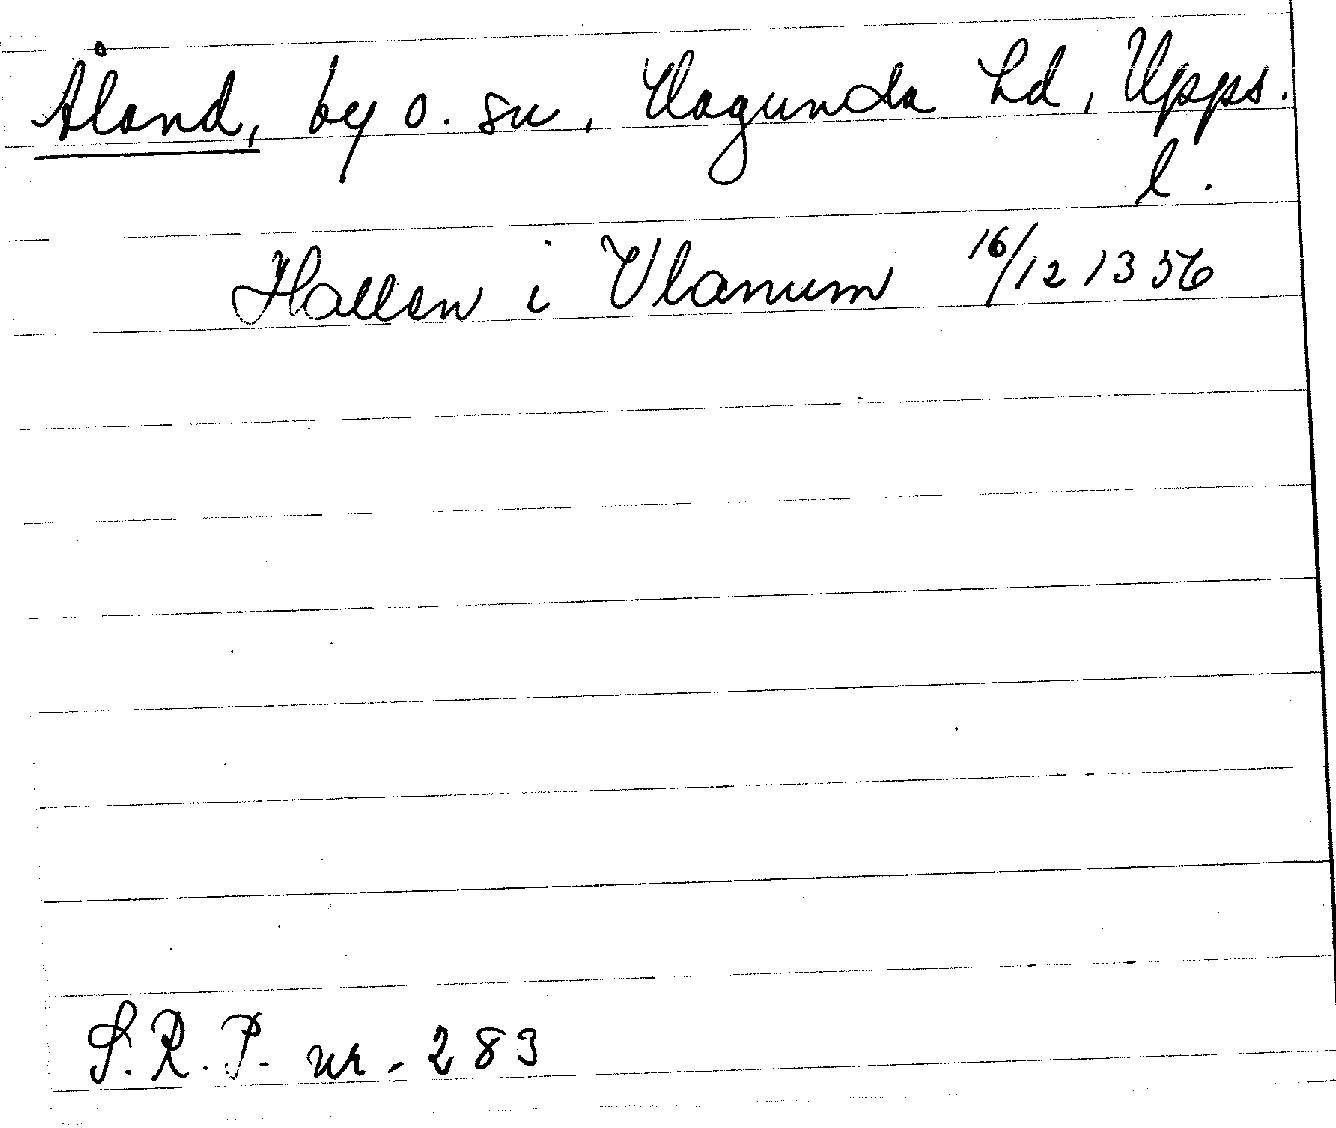 Åland, by o. sn, Hagunda hd, Upps.
l.
Hallsn i Vlanum 16/12 1356
S.R.P. nr. 283